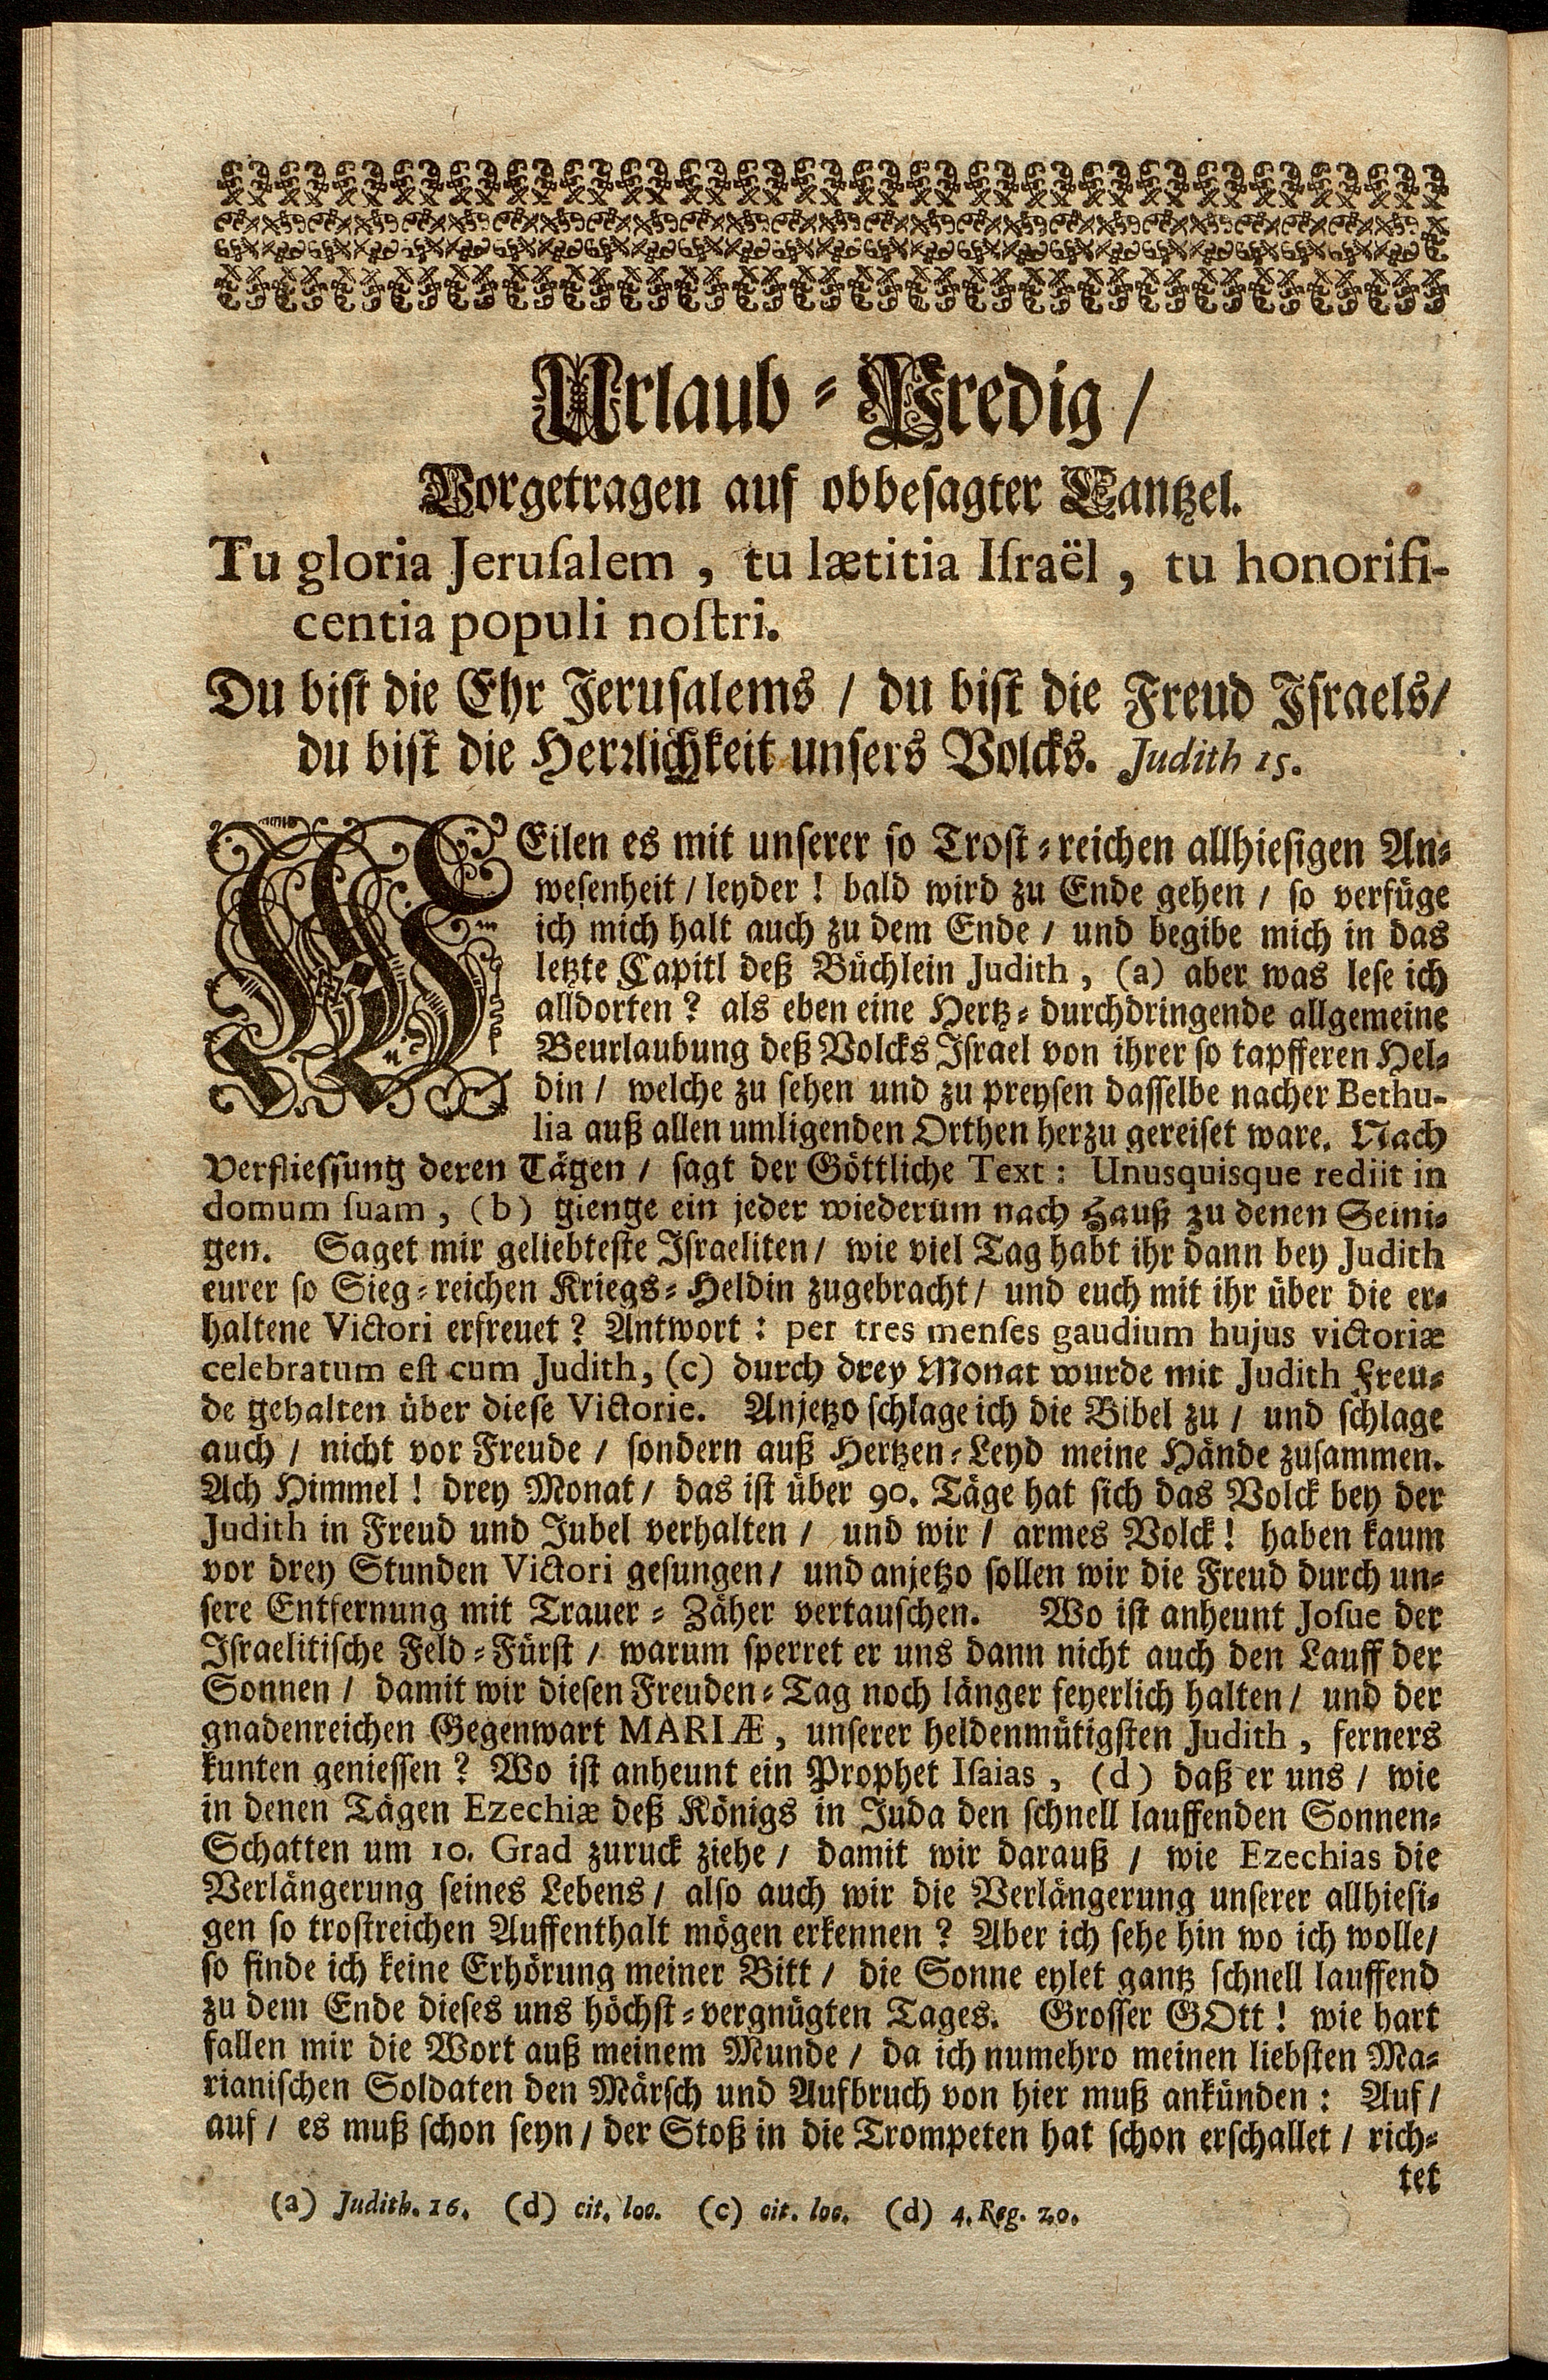 Urlaub-Predig/
Vorgetragen auf obbesagter Cantzel.
Tu gloria Jeruſalem, tu lætitia Iſraël, tu honorifi-
centia populi noſtri.
Du biſt die Ehr Jeruſalems / du biſt die Freud Iſraels/
du biſt die Herꝛlichkeit unſers Volcks. Judith 15.
WEilen es mit unſerer ſo Troſt-reichen allhieſigen An-
weſenheit / leyder! bald wird zu Ende gehen / ſo verfüge
ich mich halt auch zu dem Ende / und begibe mich in das
letzte Capitl deß Büchlein Judith, (a) aber was leſe ich
alldorten? als eben eine Hertz-durchdringende allgemeine
Beurlaubung deß Volcks Iſrael von ihrer ſo tapfferen Hel-
din / welche zu ſehen und zu preyſen daſſelbe nacher Bethu-
lia auß allen umligenden Orthen herzu gereiſet ware. Nach
Verflieſſung deren Tägen / ſagt der Göttliche Text: Unusquisque rediit in
domum ſuam, (b) gienge ein jeder wiederum nach Hauß zu denen Seini-
gen. Saget mir geliebteſte Iſraeliten / wie viel Tag habt ihr dann bey Judith
eurer ſo Sieg-reichen Kriegs-Heldin zugebracht / und euch mit ihr über die er-
haltene Victori erfreuet? Antwort: per tres menſes gaudium hujus victoriæ
celebratum eſt cum Judith, (c) durch drey Monat wurde mit Judith Freu-
de gehalten über dieſe Victorie. Anjetzo ſchlage ich die Bibel zu / und ſchlage
auch / nicht vor Freude / ſondern auß Hertzen-Leyd meine Hände zuſammen.
Ach Himmel! drey Monat / das iſt über 90. Täge hat ſich das Volck bey der
Judith in Freud und Jubel verhalten / und wir / armes Volck! haben kaum
vor drey Stunden Victori geſungen / und anjetzo ſollen wir die Freud durch un-
ſere Entfernung mit Trauer-Zäher vertauſchen. Wo iſt anheunt Joſue der
Iſraelitiſche Feld-Fürſt / warum ſperret er uns dann nicht auch den Lauff der
Sonnen / damit wir dieſen Freuden-Tag noch länger feyerlich halten / und der
gnadenreichen Gegenwart MARIÆ, unſerer heldenmütigſten Judith, ferners
kunten genieſſen? Wo iſt anheunt ein Prophet Iſaias, (d) daß er uns / wie
in denen Tägen Ezechiæ deß Königs in Juda den ſchnell lauffenden Sonnen-
Schatten um 10. Grad zuruck ziehe / damit wir darauß / wie Ezechias die
Verlängerung ſeines Lebens / alſo auch wir die Verlängerung unſerer allhieſi-
gen ſo troſtreichen Auffenthalt mögen erkennen? Aber ich ſehe hin wo ich wolle/
ſo finde ich keine Erhörung meiner Bitt / die Sonne eylet gantz ſchnell lauffend
zu dem Ende dieſes uns höchſt-vergnügten Tages. Groſſer GOtt! wie hart
fallen mir die Wort auß meinem Munde / da ich numehro meinen liebſten Ma-
rianiſchen Soldaten den Märſch und Aufbruch von hier muß ankünden: Auf/
auf / es muß ſchon ſeyn / der Stoß in die Trompeten hat ſchon erſchallet / rich-
tet
(a) Judith. 16. (d) cit. loc. (c) cit. loc. (d) 4. Reg. 20.